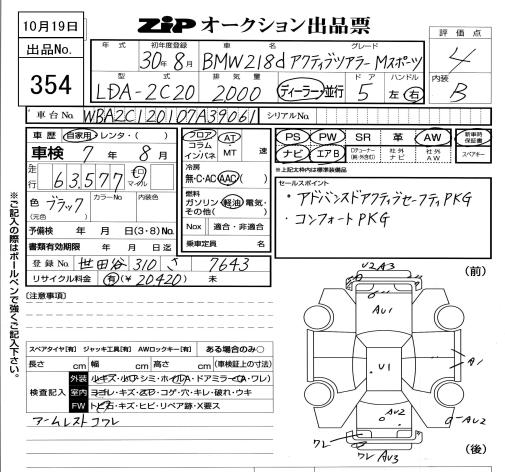 10月19日 ZIP オークション出品票
評価点
出品No. 354
年式 初年度登録 車名 グレード
30年8月 BMW218d アクティブツアラーMスポーツ
4
型式 排気量 ドア ハンドル 内装
LDA-2C20 2000 ディーラー 並行 5 左 右 B
車台No. WBA2C120107A39061 シリアルNo.
車歴 自家用・レンタ・( )
車検 7年 8月
走行 63,577 キロ マイル
色 ブラック カラーNo. 内装色
(元色)
予備検 年 月 日(3・8)No.
書類有効期限 年 月 日迄
登録No. 世田谷 310 さ 7643
リサイクル料金 有(¥20420) 未
フロア コラム インパネ AT ・MT 速
冷房
無・C・AC AAC( )
燃料
ガソリン 軽油・電気・
その他( )
Nox 適合・非適合
乗車定員 名
PS PW SR 革 AW 新車時保証書
ナビ エアB Dコーナー(純・外含む) 社外ナビ 社外AW スペアキー
※上記太枠内は標準装備品
セールスポイント
・アドバンスドアクティブセーフティPKG
・コンフォートPKG
※ご記入の際はボールペンで強くご記入下さい。
〔注意事項〕
スペアタイヤ【有】 ジャッキ工具【有】 AWロックキー【有】 ある場合のみ○
長さ cm 幅 cm 高さ cm (車検証上の寸法)
検査記入
外装 小キズ・小凹・シミ・ホイルA・ドアミラー(A・ワレ)
室内 ヨゴレ・キズ・スレ・コゲ・穴・キレ・破れ・ウキ
FW トビ石・キズ・ヒビ・リペア跡・X要ス
アームレストコワレ
(前)
U2A3
AU1
A1
U1
AU2
AU2
ワレ
ワレ AU3
(後)